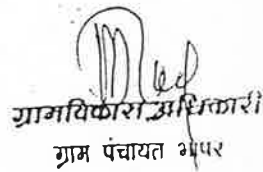 ग्रामविकास अधिकारी
ग्राम पंचायत भापर